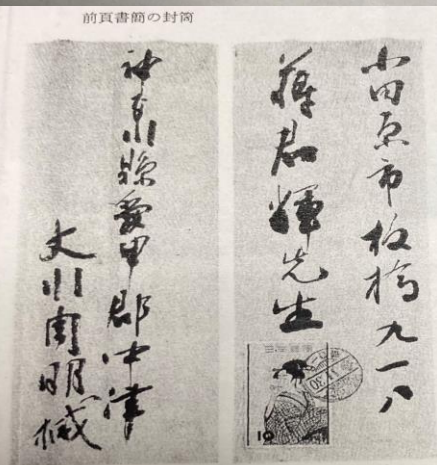 前頁書簡の封筒
小田原市板橋九一八
蒋君輝先生
10
神奈川縣愛甲郡中津
大川周明緘